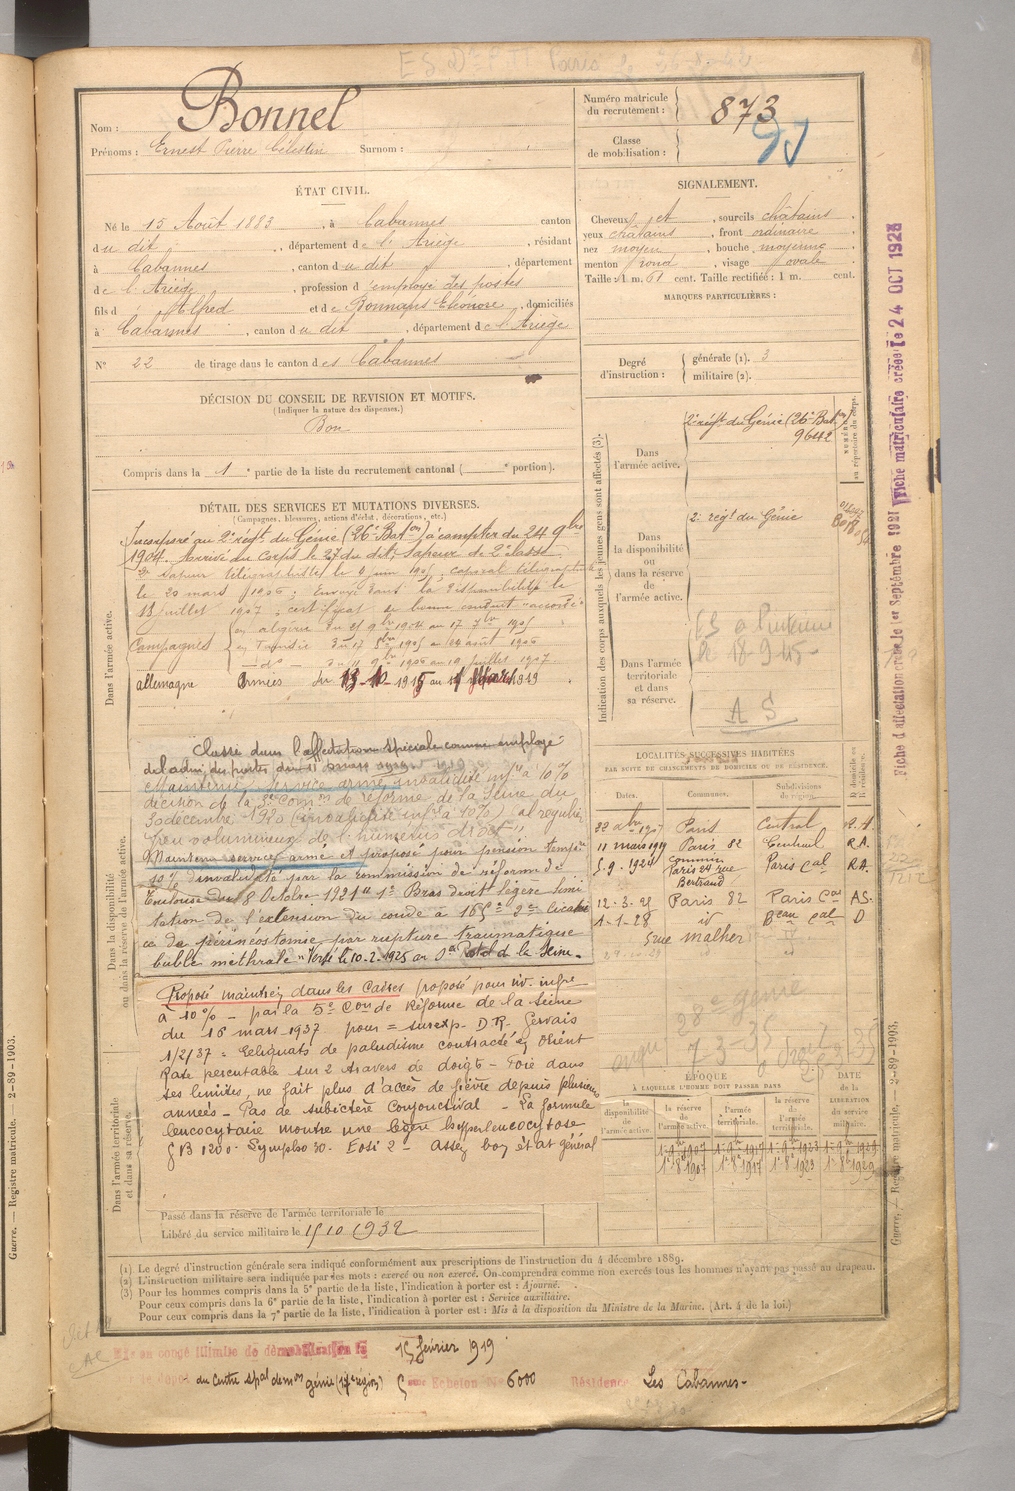 Nom : Bonnel
Prénoms : Ernest Pierre Célestin Surnom :
Numéro matricule du recrutement : 873
Classe de mobilisation :
ÉTAT CIVIL.
Né le 15 Août 1883, à Cabannes canton
du dit, département de l'Ariège, résidant
à Cabannes, canton du dit, département
de l'Ariège, profession d'employé des postes
fils d'Alfred et de Bonnans Eléonore, domiciliés
à Cabannes, canton du dit, département de l'Ariège
N° 22 de tirage dans le canton des Cabannes
SIGNALEMENT.
Cheveux et, sourcils châtains,
yeux châtains, front ordinaire
nez moyen, bouche moyenne
menton rond, visage ovale.
Taille : 1 m. 61 cent. Taille rectifiée : 1 m. cent.
MARQUES PARTICULIÈRES :
Degré d'instruction : générale (1). 3
militaire (2).
DÉCISION DU CONSEIL DE REVISION ET MOTIFS.
(Indiquer la nature des dispenses.)
Bon
Compris dans la 1e partie de la liste du recrutement cantonal ( e portion).
DÉTAIL DES SERVICES ET MUTATIONS DIVERSES.
(Campagnes, blessures, actions d'éclat, décorations, etc.)
Dans l'armée active.
Incorporé au 2e régt du Génie (26e Baton) à compter du 24 9bre
1904. Arrivé au corps le 27 du dit. Sapeur de 2e classe
Sapeur télégraphiste le 9 juin 1905, caporal télégraphiste
le 20 mars 1906 ; Envoyé dans la disponibilité le
juillet 1907 ; certificat de bonne conduite accordé
Campagnes en algérie du 25 9bre 1904 au 17 7bre 1905
en Tunisie du 17 1905 au août 1906
— do — du 11 9bre 1906 au 10 juillet 1907
allemagne Armées du 13-10-1915 au 1919
Dans la disponibilité ou dans la réserve de l'armée active.
Classé dans l'affectation spéciale comme employé
de l'admin. des postes du 11 mars 1919.
Maintenu service armé, invalidité infre à 10%
décision de la Comon de réforme de la Seine du
30 décembre 1920 (invalidité infre à 10%) cal régulier
peu volumineux de l'humérus droit"
Maintenu service armé et proposé pour pension tempre
10% d'invalidité par la commission de réforme de
Toulouse du 8 Octobre 1921 "1° Bras droit légère limi
tation de l'extension du coude à 165° 2° Cicatri
ce de périnéostomie par rupture traumatique
bulbe Versé le 10.2.1925 au la Seine.
Dans l'armée territoriale et dans sa réserve.
Proposé maintien dans les Cadres proposé pour inv. infre
à 10% - par la 5e Con de Réforme de la Seine
du 16 mars 1937 pour = surexp. D.R. Gervais
1/2/37 : Reliquats de paludisme contracté en Orient
Rate percutable sur 2 travers de doigts - Foie dans
ses limites, ne fait plus d'accès de fièvre depuis plusieurs
années - Pas de subictère conjonctival - La formule
leucocytaire montre une légère hyperleucocytose
Lympho 30. Eosi 2 - assez bon état général
Passé dans la réserve de l'armée territoriale le
Libéré du service militaire le 15 10 1932
Indication des corps auxquels les jeunes gens sont affectés (3).
NUMÉROS au répertoire du corps.
Dans l'armée active.
2e régt du Génie (26e Baton)
9642
Dans la disponibilité ou dans la réserve de l'armée active.
2e régt du Génie
Dans l'armée territoriale et dans sa réserve.
A S
LOCALITÉS SUCCESSIVES HABITÉES
PAR SUITE DE CHANGEMENTS DE DOMICILE OU DE RÉSIDENCE.
Dates. Communes. Subdivisions de région. D. domicile ou R. résidence.
22 1907 Paris Central
11 mars 1919 Paris 82 Central R.A.
5.9.1921 Paris 24 rue Bertrand Paris Cal R.A.
12-3-25 Paris 82 Paris Cal AS.
1-1-28 id Beau cal D
5 rue Malher
28e génie
7-3-35
ÉPOQUE
À LAQUELLE L'HOMME DOIT PASSER DANS
la disponibilité de l'armée active.
la réserve de l'armée active.
l'armée territoriale.
la réserve de l'armée territoriale.
DATE de la LIBÉRATION du service militaire.
1er 9bre 1907 1er 9bre 1917 1er 9bre 1923 1er 9bre 1929
1er 8bre 1907 1er 8bre 1917 1er 8bre 1923 1er 8bre 1929
(1) Le degré d'instruction générale sera indiqué conformément aux prescriptions de l'instruction du 4 décembre 1889.
(2) L'instruction militaire sera indiquée par les mots : exercé ou non exercé. On comprendra comme non exercés tous les hommes n'ayant pas passé au drapeau.
(3) Pour les hommes compris dans la 5e partie de la liste, l'indication à porter est : Ajourné.
Pour ceux compris dans la 6e partie de la liste, l'indication à porter est : Service auxiliaire.
Pour ceux compris dans la 7e partie de la liste, l'indication à porter est : Mis à la disposition du Ministre de la Marine. (Art. 4 de la loi.)
Mis en congé illimité de démobilisation le 15 février 1919
dépôt du Centre spal de mon génie (17e région) 5ème Echelon N° 6000 Résidence Les Cabannes-
Fiche d'affectation créée le 1er Septembre 1921 Fiche matriculaire créée le 24 OCT 1928
Guerre. — Registre matricule. — 2-89-1903.
Guerre. — Registre matricule. — 2-89-1903.